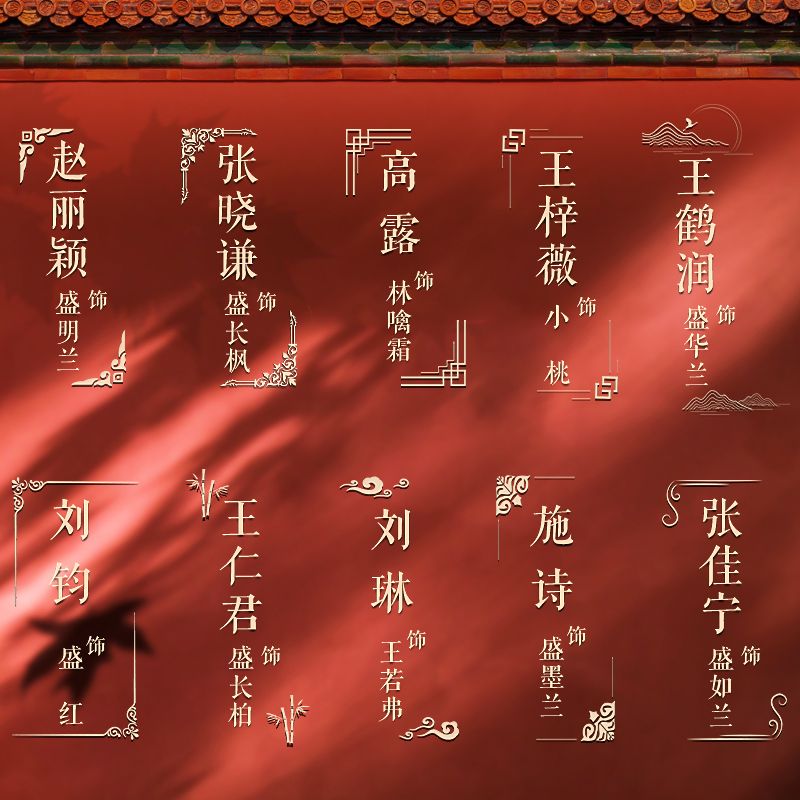 赵丽颖
饰
盛明兰
张晓谦
饰
盛长枫
高露
饰
林噙霜
王梓薇
饰
小桃
王鹤润
饰
盛华兰
刘钧
饰
盛红
王仁君
饰
盛长柏
刘琳
饰
王若弗
施诗
饰
盛墨兰
张佳宁
饰
盛如兰